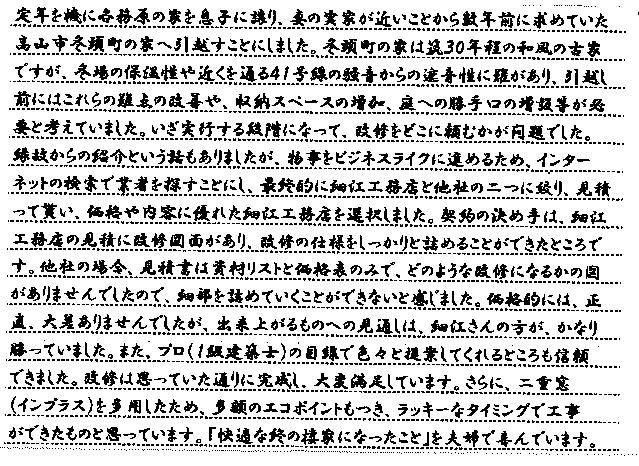 定年を機に各務原の家を息子に譲り、妻の実家が近いことから数年前に求めていた
高山市冬頭町の家へ引越すことにしました。冬頭町の家は築30年程の和風の古家
ですが、冬場の保温性や近くを通る41号線の騒音からの遮音性に難があり、引越し
前にはこれらの難点の改善や、収納スペースの増加、庭への勝手口の増設等が必
要と考えていました。いざ実行する段階になって、改修をどこに頼むかが問題でした。
縁故からの紹介という話もありましたが、物事をビジネスライクに進めるため、インター
ネットの検索で業者を探すことにし、最終的に細江工務店と他社の二つに絞り、見積
って貰い、価格や内容に優れた細江工務店を選択しました。契約の決め手は、細江
工務店の見積に改修図面があり、改修の仕様をしっかりと詰めることができたところで
す。他社の場合、見積書は資材リストと価格表のみで、どのような改修になるかの図
がありませんでしたので、細部を詰めていくことができないと感じました。価格的には、正
直、大差ありませんでしたが、出来上がるものへの見通しは、細江さんの方が、かなり
勝っていました。また、プロ(1級建築士)の目線で色々と提案してくれるところも信頼
できました。改修は思っていた通りに完成し、大変満足しています。さらに、二重窓
(インプラス)を多用したため、多額のエコポイントもつき、ラッキーなタイミングで工事
ができたものと思っています。「快適な終の棲家になったこと」を夫婦で喜んでいます。